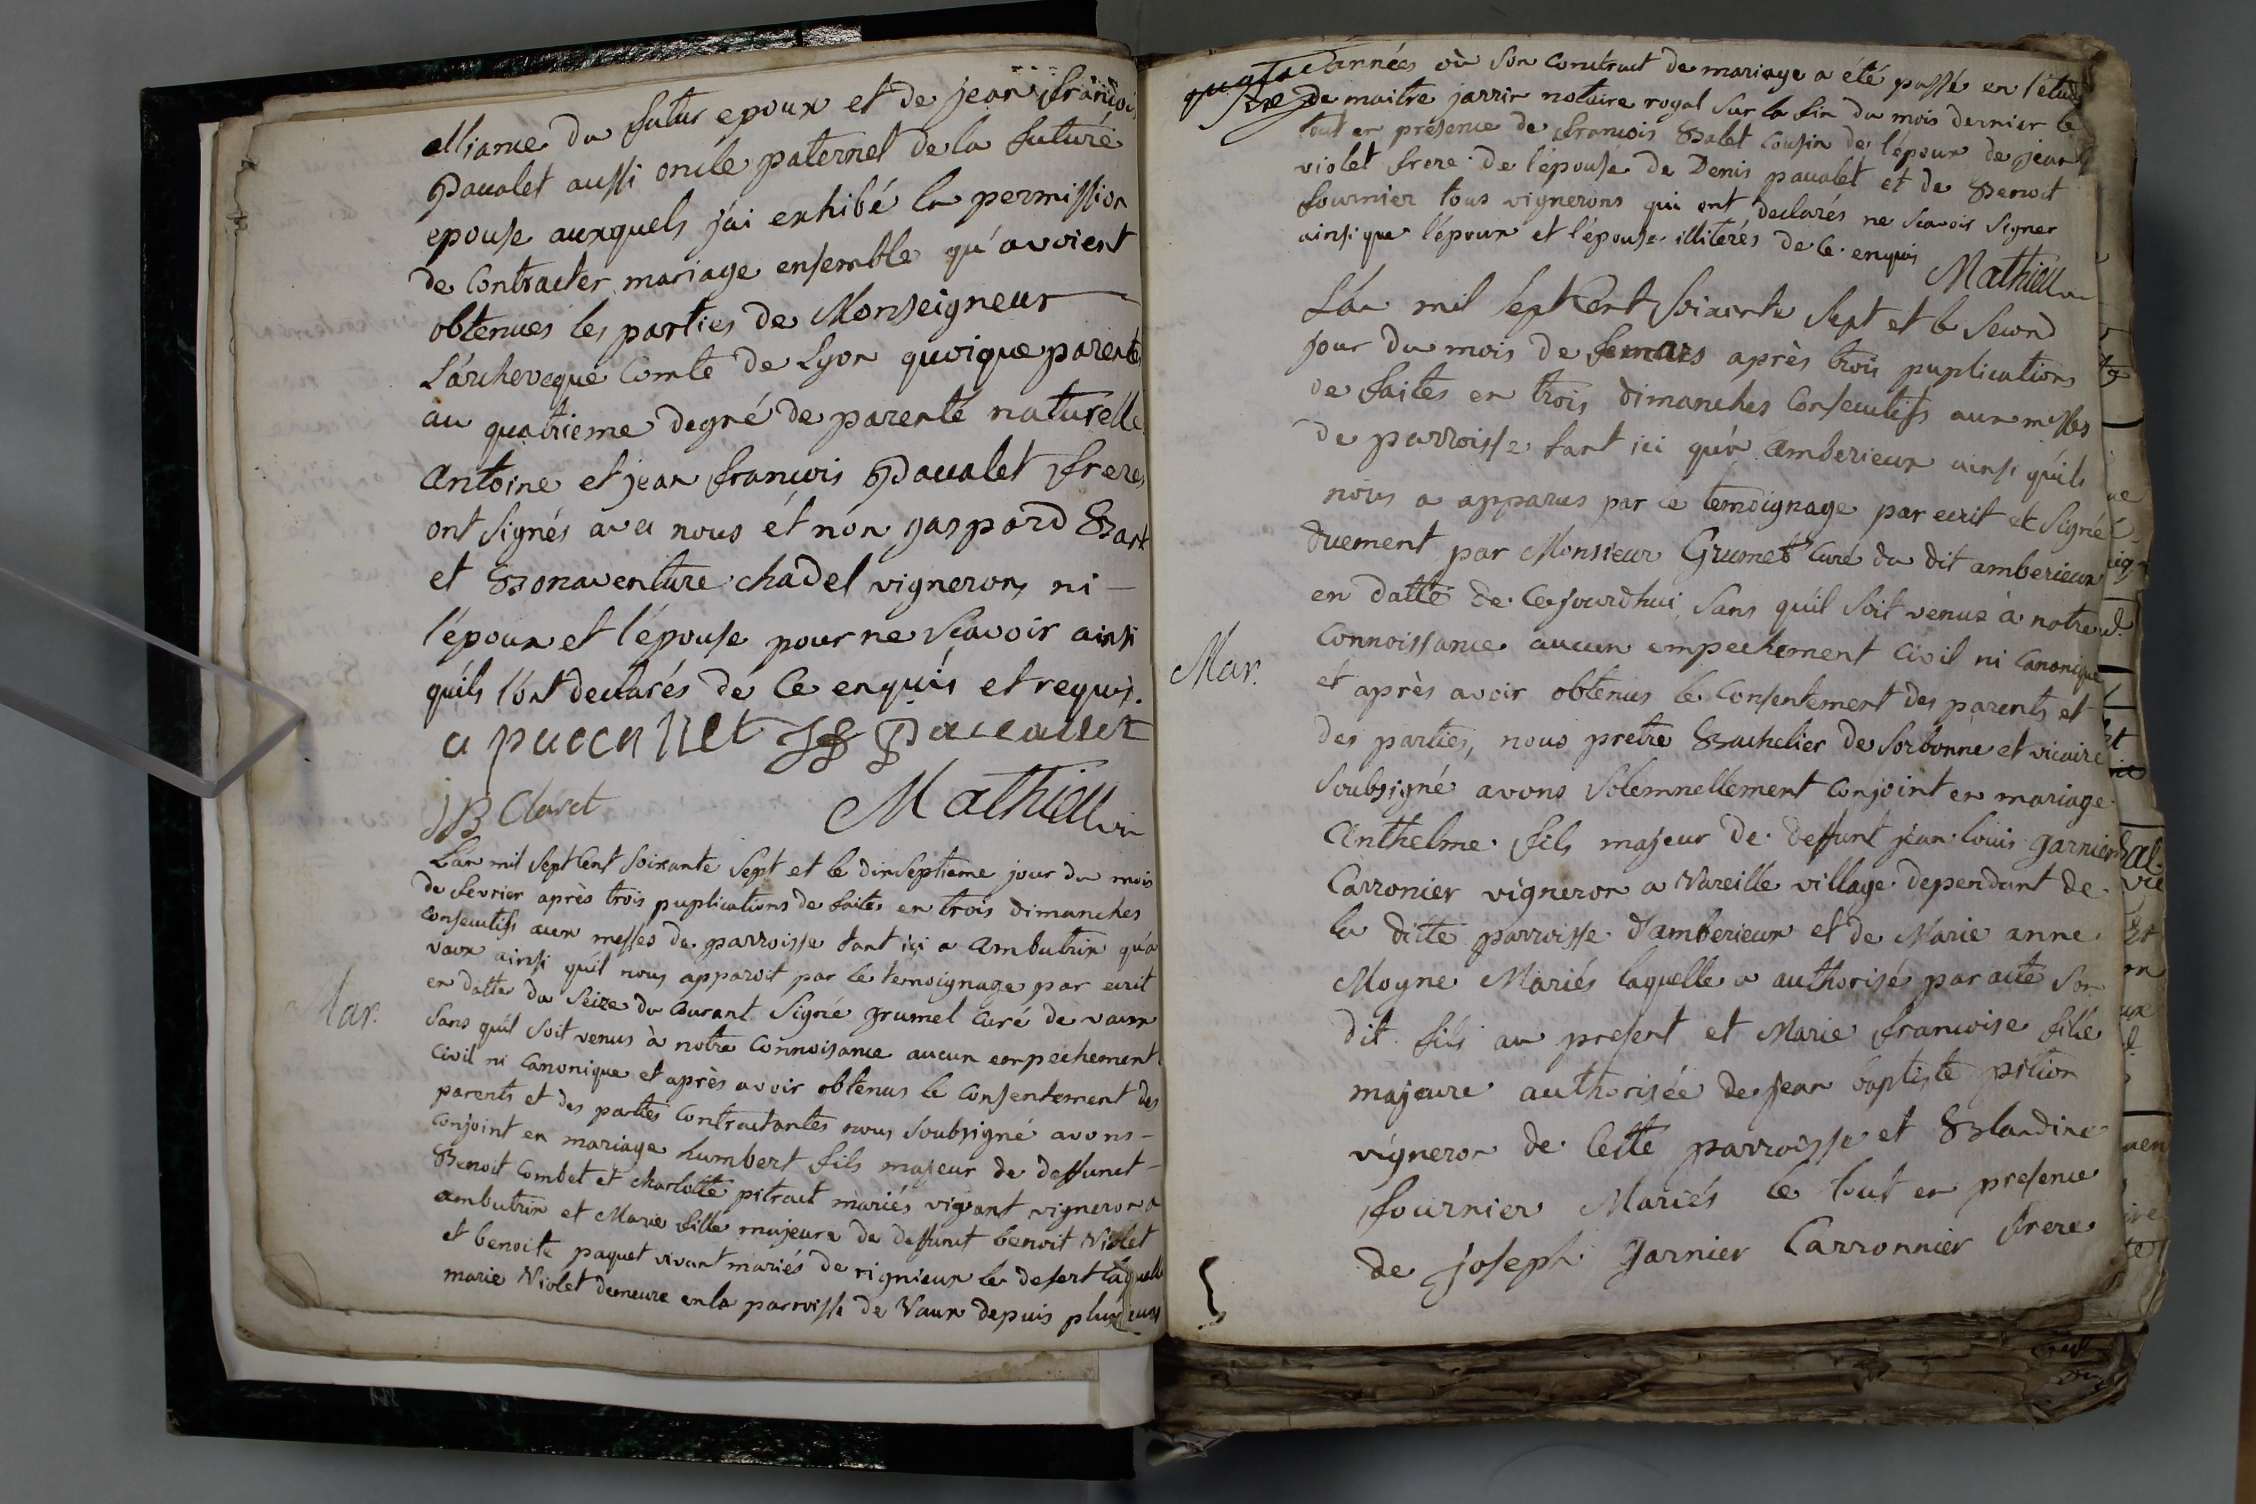 alliance du futur epoux et de jean françois
Pacalet aussi oncle paternel de la future
epouse auxquels j'ai exhibé la permission
de Contracter mariage ensemble qu'avoient
obtenues les parties de Monseigneur
L'archeveque Comte de Lyon quoique parents
au quatrieme degré de parenté naturelle
Antoine et jean françois Pacalet freres
ont signés avec nous et non gaspard
et Bonaventure chadel vignerons ni
l'époux et l'épouse pour ne scavoir ainsi
quils l'ont declarés de Ce enquis et requis.
JB Claret
Mathieu
L'an mil sept Cent soixante sept et le dixseptieme jour du mois
de fevrier après trois puplications de faites en trois dimanches
consecutifs aux messes de parroisse tant ici a ambutrix qu'a
vaux ainsi qu'il nous apparoit par le temoignage par ecrit
en datte du seize du Courant signé grumel Curé de vaux
Mar.
sans qu'il soit venus à notre Connoisance aucun empechement
Civil ni Canonique et après avoir obtenus le consentement des
parents et des parties Contractantes nous soubsigné avons
Conjoint en mariage humbert fils majeur de deffunct
Benoit Combet et charlotte pitract mariés vivant vigneron a
ambutrix et Marie fille majeure de deffunct benoit Violet
et benoite paquet vivant mariés de rignieux le desert laquelle
marie Violet demeure en la parroisse de Vaux depuis plusieurs
années où son Contract de mariage a été passé en l'étude
de maitre jarrin notaire royal sur la fin du mois dernier le
tout en présence de françois Balet Cousin de l'époux de jean
violet frere de l'épouse de Denis pacalet et de Benoit
fournier tous vignerons qui ont declarés ne scavoir signer
ainsi que l'époux et l'épouse illiterés de Ce enquis
Mathieu
L'an mil sept Cent soixante sept et le second
jour du mois de mars après trois puplications
de faites en trois dimanches Consecutifs aux messes
de parroisse tant ici qu'a Amberieux ainsi quils
nous a apparus par le temoignage par ecrit et signé
duement par Monsieur Grumet Curé du dit amberieux
en datte de Cejourdhui sans quil soit venus à notre
Mar.
Connoissance aucun empechement Civil ni Canonique
et après avoir obtenus le Consentement des parents et
des parties, nous pretre Bachelier de sorbonne et vicaire
soubsigné avons solemnellement Conjoint en mariage
Anthelme fils majeur de deffunt jean louis garnier
Carronier vigneron a Vareille village dependant de
la ditte parroisse d'amberieux et de Marie anne
Moyne Mariés laquelle a authorisé par acte son
dit fils au present et Marie françoise fille
majeure authorisée de jean baptiste pition
vigneron de Cette parroisse et Blandine
fournier Mariés le tout en presence
de joseph garnier Carronnier frere